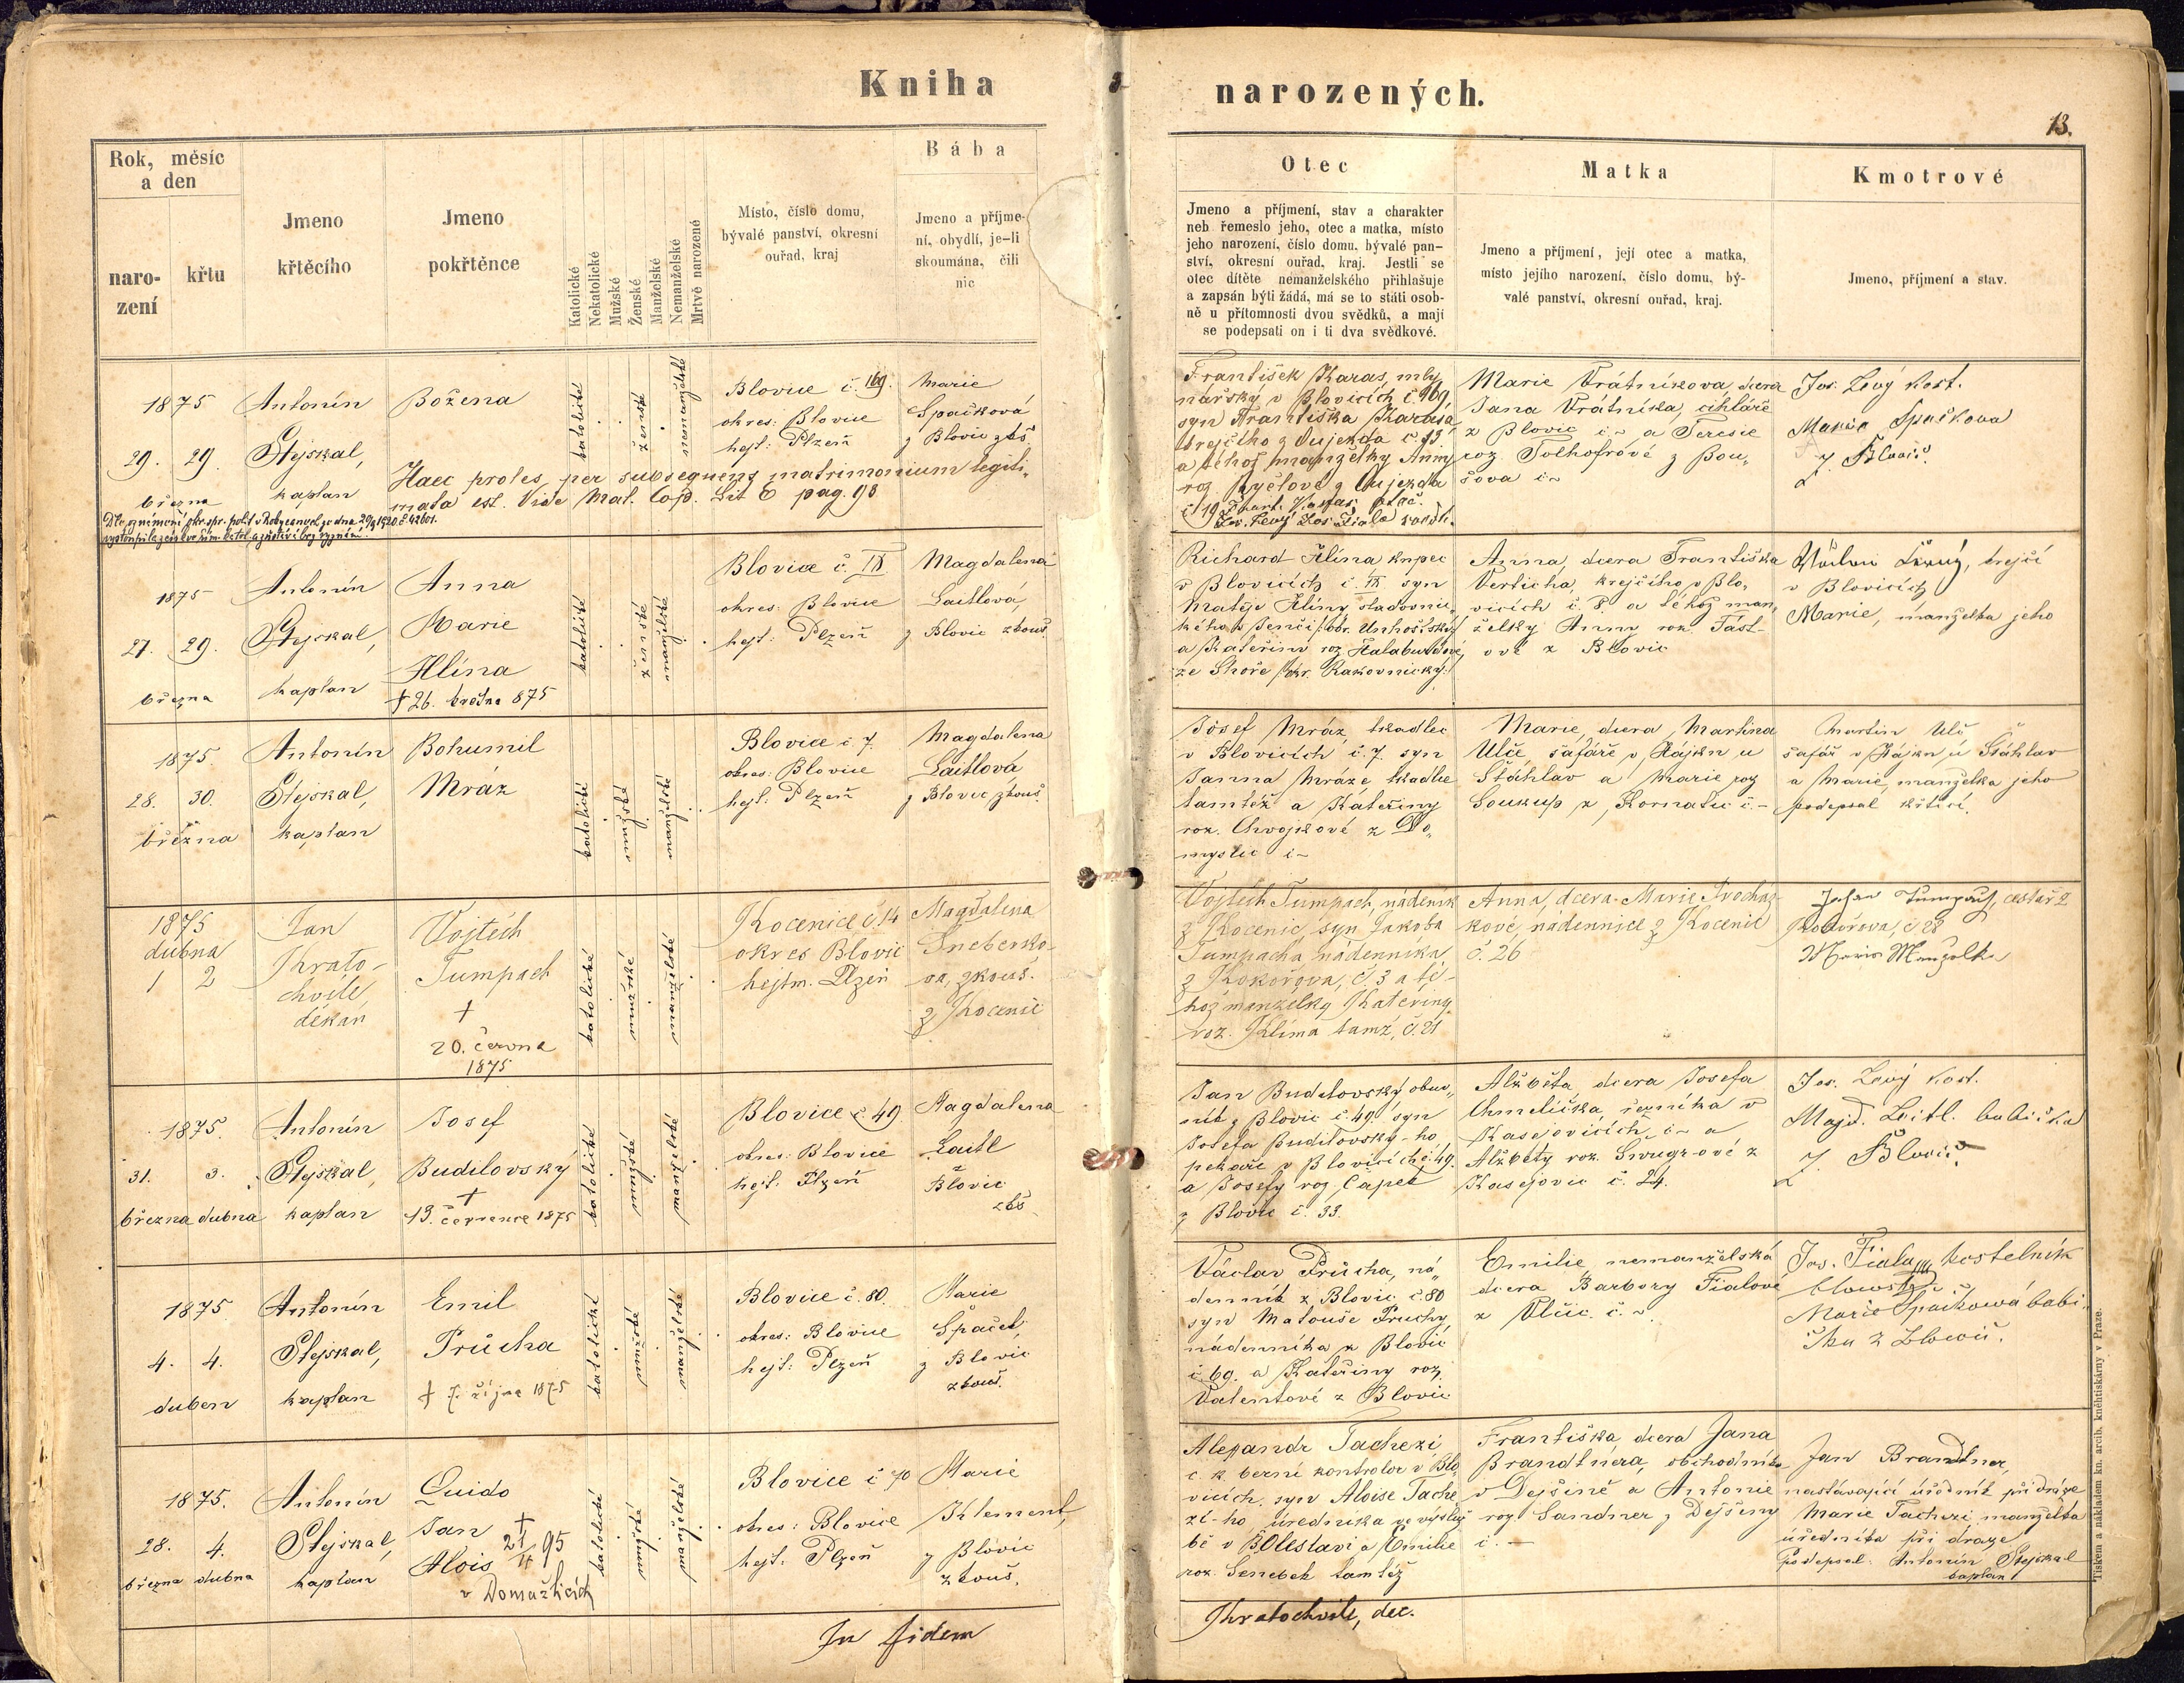 Kniha narozených.
13.
Rok, měsíc
a den
naro-
zení
křtu
Jmeno
křtěcího
Jmeno
pokřtěnce
Katolické
Nekatolické
Mužské
Ženské
Manželské
Nemanželské
Mrtvě narozené
Místo, číslo domu,
bývalé panství, okresní
ouřad, kraj
Bába
Jmeno a příjme-
ní, obydlí, je-li
skoumána, čili
nic
Otec
Jmeno a příjmení, stav a charakter
neb řemeslo jeho, otec a matka, místo
jeho narození, číslo domu, bývalé pan-
ství, okresní ouřad, kraj. Jestli se
otec dítěte nemanželského přihlašuje
a zapsán býti žádá, má se to státi osob-
ně u přítomnosti dvou svědků, a mají
se podepsati on i ti dva svědkové.
Matka
Jmeno a příjmení, její otec a matka,
místo jejího narození, číslo domu, bý-
valé panství, okresní ouřad, kraj.
Kmotrové
Jmeno, příjmení a stav.
1875
29. 29.
března
Antonín
Stejskal,
kaplan
Božena
Haec proles per subsequens matrimonium legiti-
mata est. Vide Mat. Cop. Lit E pag. 98
katolické
ženské
nemanželské
Blovice č. 169.
okres: Blovice
hejt: Plzeň
Marie
Špačková
z Blovic zkš
František Karas, mly
nářský v Blovicích č. 169,
syn Františka Karasa
krejčího z Oujezda č. 13.
a téhož manželky Anny
roz Ryčlové z Oujezda
č 19
Marie Vrátníkova dcera
Jana Vrátníka, cihláře
z Blovic č ~ a Teresie
roz. Tolhofrové z Bou„
šova č ~
Jos. Levý kost.
Marie Špačkova
z Blovic.
1875
27. 29.
března
Antonín
Stejskal,
kaplan
Anna
Marie
Hlína
† 26. května 875
katolické
ženské
manželské
Blovice č. IX
okres: Blovice
hejt: Plzeň
Magdalena
Laitlová
z Blovic zkouš
Richard Hlína kupec
v Blovicích č. IX syn
Matěje Hlíny, sladovnic
kého v Jenči /: okr. Unhošťský:/
a Kateřiny roz Halaburdové
ze Lhoře /: okr. Rakovnický:/
Anna, dcera Františka
Verlicha, krejčího v Blo,
vicích č. 8. a téhož man,
želky Anny roz. Fást-
ové z Blovic
krejčí
v Blovicích
Marie, manželka jeho
1875.
28. 30.
března
Antonín
Stejskal,
kaplan
Bohumil
Mráz
katolické
mužské
manželské
Blovice č 7.
okres: Blovice
hejt: Plzeň
Magdalena
Laitlová
z Blovic zkouš.
Josef Mráz, tkadlec
v Blovicích č. 7. syn
Janna Mráze tkadlce
tamtéž a Kateřiny
roz. Chvojkové z Do„
myslic č ~
Marie, dcera Martina
Ulče šafáře v Hájku u
Šťáhlav a Marie roz
Soukup z Kornatic č. -
Martin Ulč
šafář v Hájku u Šťáhlav
a Marie, manželka jeho
podepsal křtící.
1875
dubna
1 2
Jan
Krato-
chvíle,
děkan
Vojtěch
Tumpach
†
20. června
1875
katolické
mužské
manželské
Kocenice č. 14
okres Blovic
hejtm. Plzeň
Magdalena
Šneberko-
va, zkouš.
z Kocenic
Vojtěch Tumpach, nádeník
z Kocenic, syn Jakoba
Tumpacha, nádenníka,
z Kokořova, č. 3 a té-
hož manželky Kateřiny
roz. Klíma tamž, č. 21
Anna, dcera Marie Procház-
kové, nádennice z Kocenic
č. 26
Tumpach, cestář z
Kokořova, č 28
Marie Manželka
1875.
31. 3.
března dubna
Antonín
Stejskal,
kaplan
Josef
Budilovský
†
13. července 1875
katolické
mužské
manželské
Blovice č. 49
okres: Blovice
hejt: Plzeň
Magdalena
Laitl
Blovic
zkš
Jan Budilovský, obuv„
ník z Blovic č. 49. syn
Josefa Budilovský-ho
pekaře v Blovicích č. 49.
a Josefy roz. Čapek
z Blovic č. 33.
Alžběta dcera Josefa
Chmelíčka, řezníka v
Kasejovicích č ~ a
Alžběty roz. ové z
Kasejovic č. 24.
Jos. Levý kost.
Majd. Leitl. babička
z Blovic
1875
4. 4.
duben
Antonín
Stejskal,
kaplan
Emil
Průcha
† 7. října 1875
katolické
mužské
manželské
Blovice č. 80.
okres: Blovice
hejt: Plzeň
Marie
Špaček,
z Blovic
zkouš.
Václav Průcha, ná„
denník z Blovic č 80
syn Matouše Průchy,
nádenníka z Blovic
č. 69. a Kateřiny roz.
Valentové z Blovic
Emilie nemanželská
dcera Barbory Fialové
z Vlčic č. ~
Jos. Fiala, kostelník
Marie Špačkowá babi„
čka z Blowic.
1875.
28. 4.
března dubna
Antonín
Stejskal,
kaplan
Quido
Jan
Alois
† 21/4 95
v Domažlicích
katolické
mužské
manželské
Blovice č 70
okres: Blovice
hejt: Plzeň
Marie
Klement,
z Blovic
zkouš.
Alexandr Tachezi
c. k. berní kontrolor v Blo,
vicích, syn Aloise Tache
zi-ho úředníka ve výsluž
bě v B. Oleslavi a Emilie
roz. Senebek tamtéž
Františka, dcera Jana
Brandtnera, obchodníka
v Dejšině a Antonie
roz Sandner z Dejšiny
č. —
Jan Brandtner,
nastávající úředník při dráze
Marie Tachezi manželka
úředníka při draze
Podepsal: Antonín Stejskal
kaplan
In fidem
Kratochvíle, dec.
Tiskem a nákladem kn. arcib. kněhtiskárny v Praze.